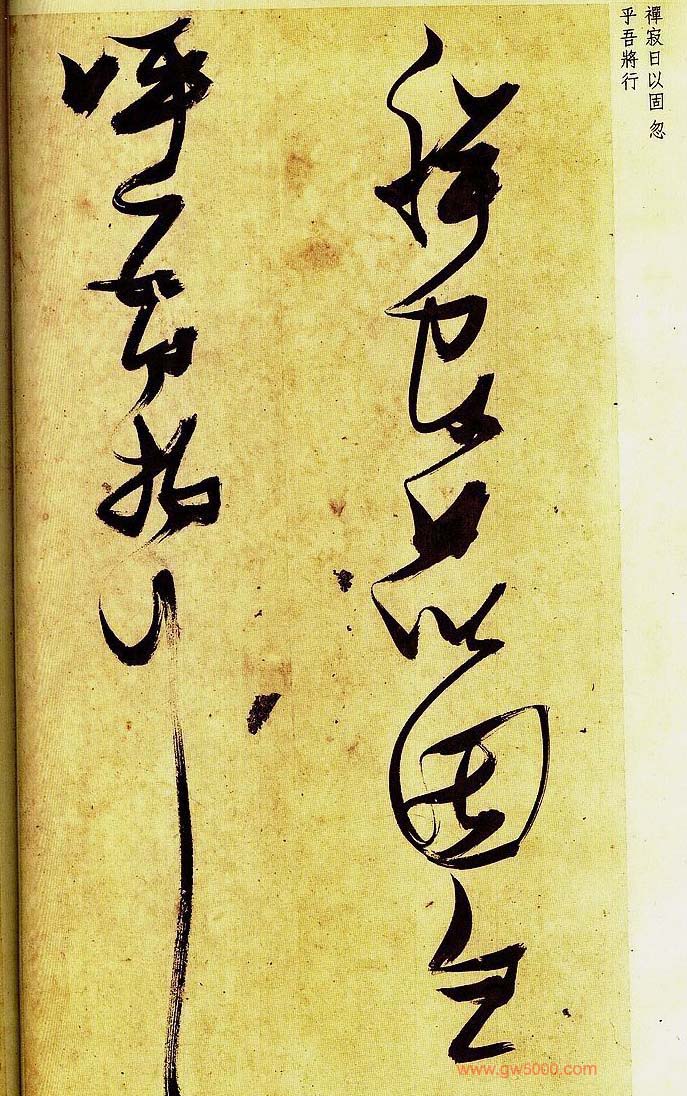 禪寂日以固 忽
乎吾將行
禪寂日以固忽
乎吾將行
www.gw5000.com